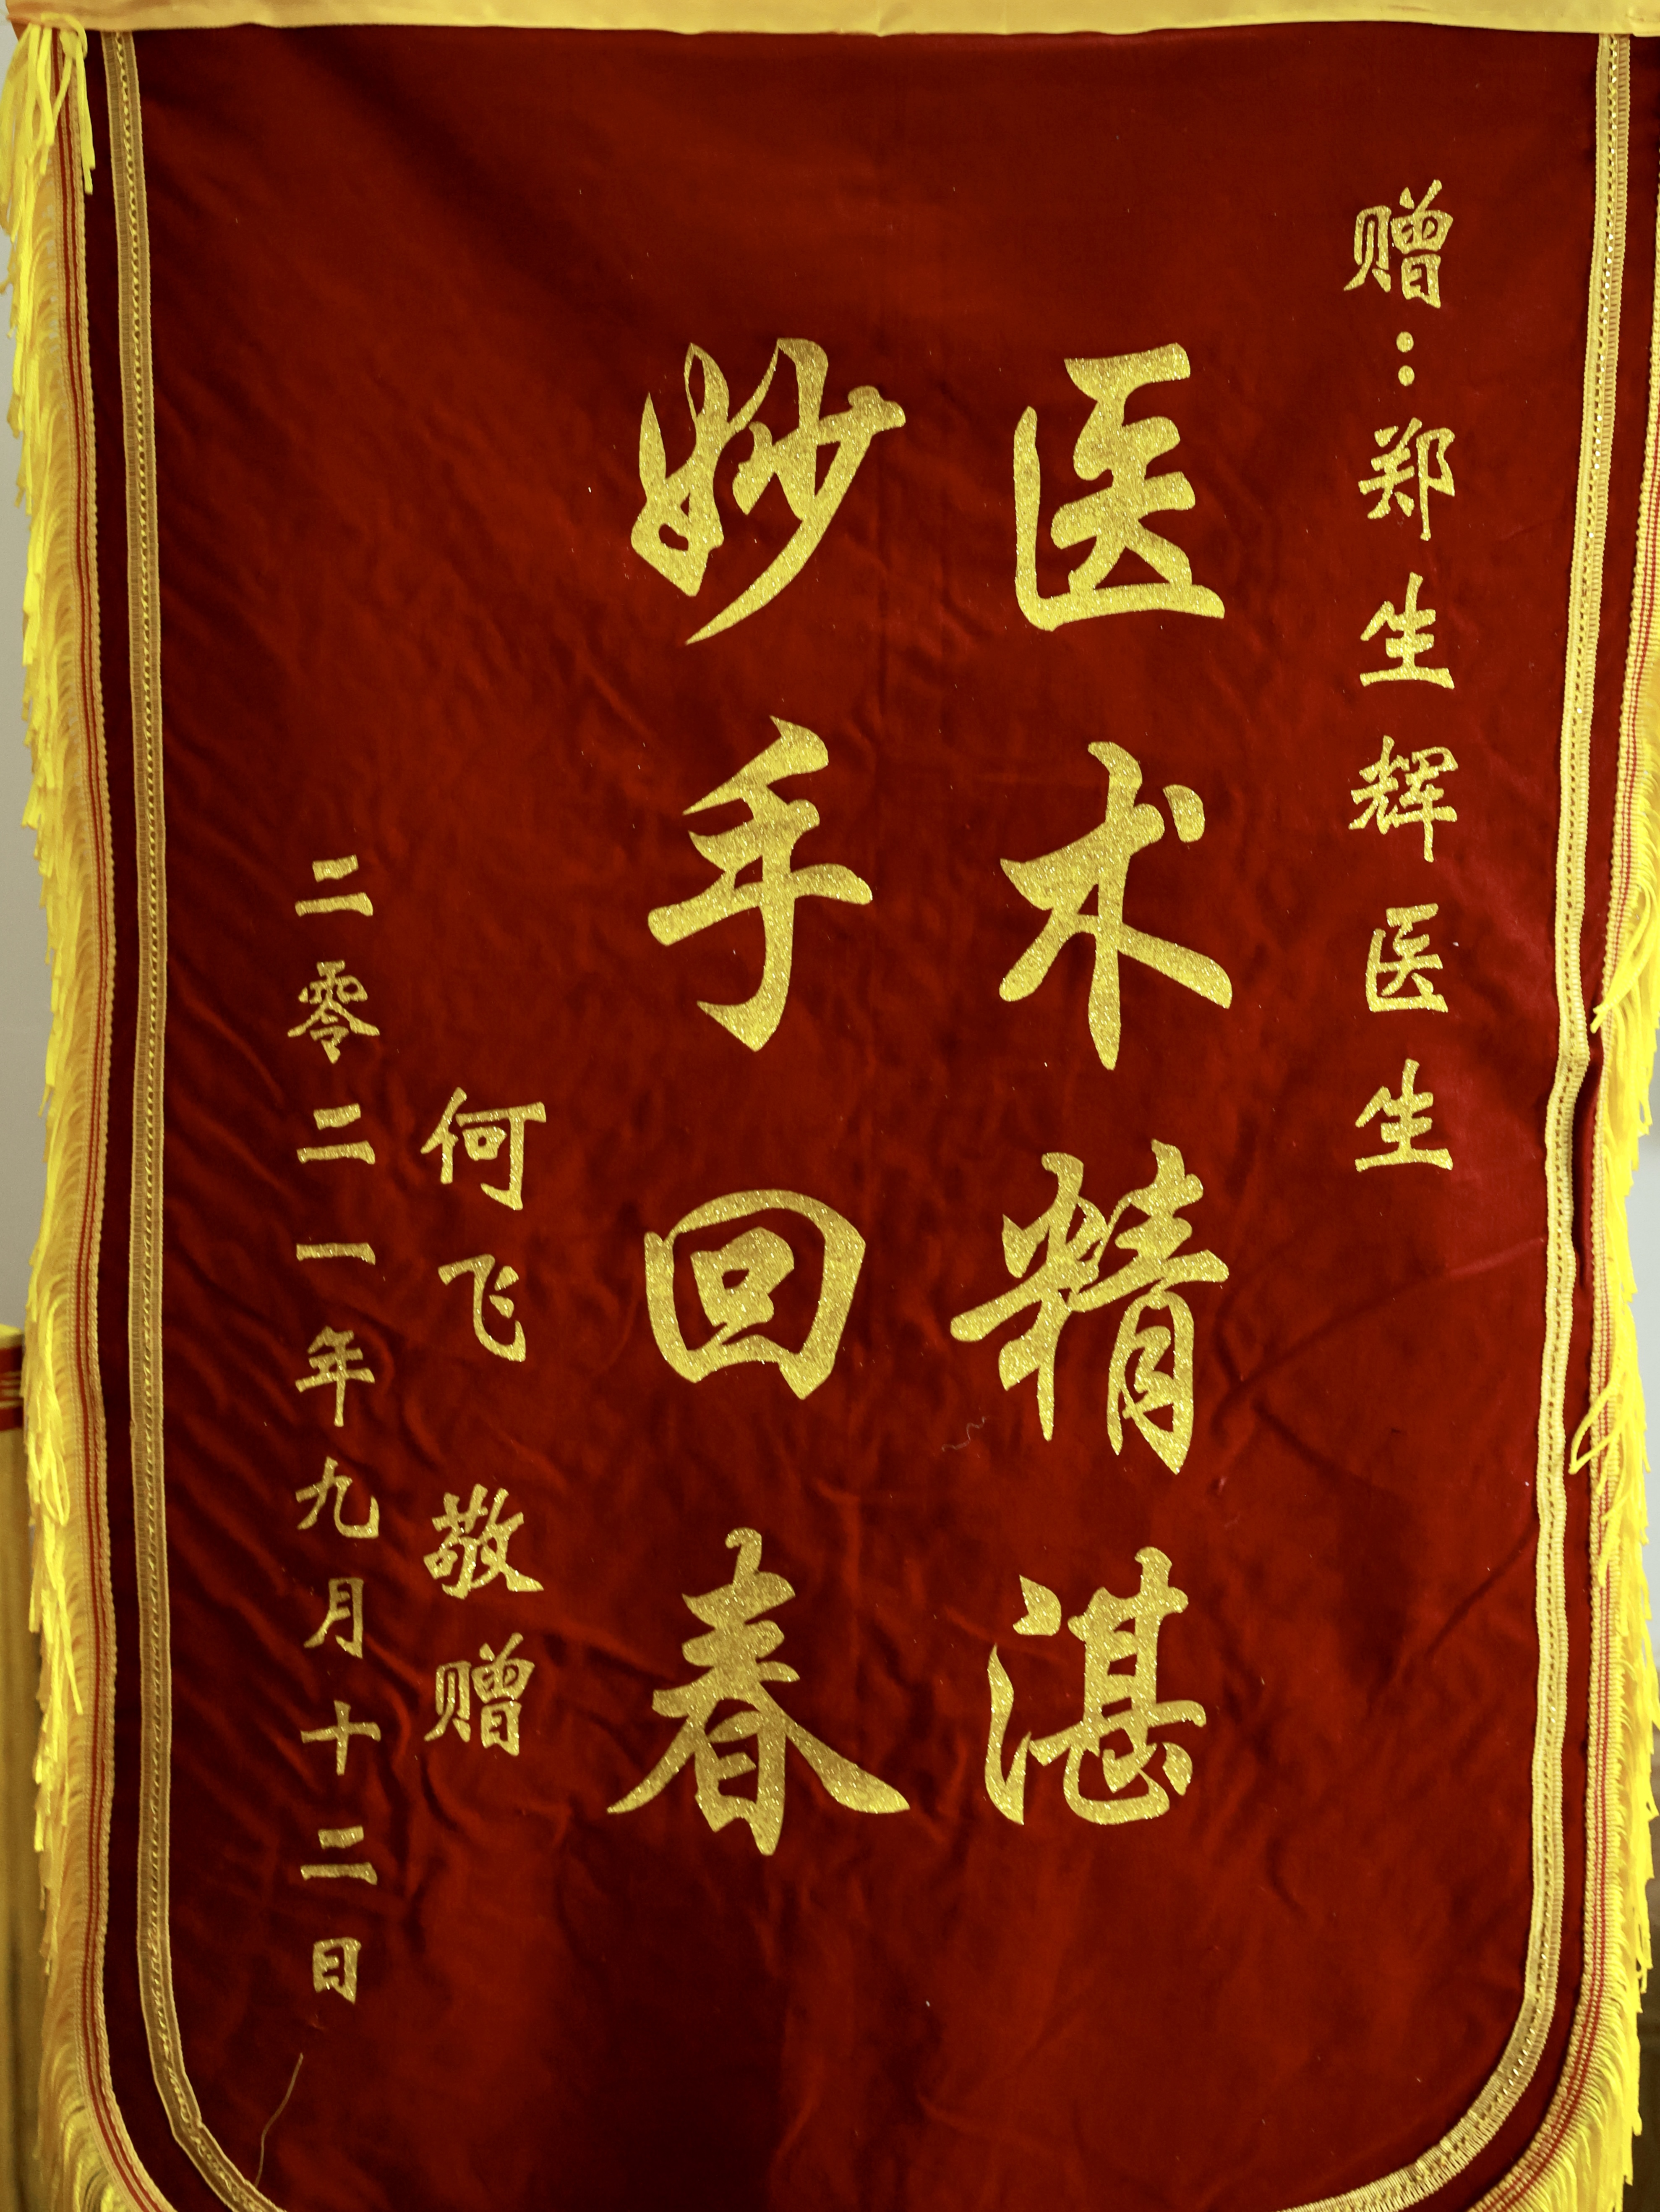 赠：郑生辉医生
医术精湛
妙手回春
何飞 敬赠
二零二一年九月十二日